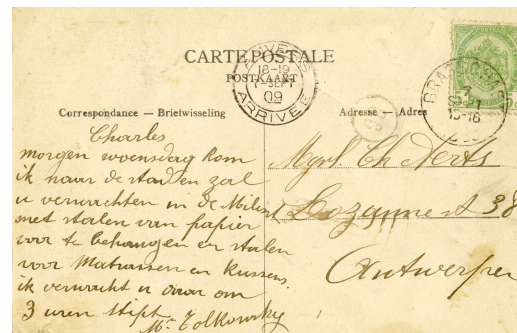 CARTE POSTALE
POSTKAART
ANVERS
18-19
7-SEPT
09
ARRIVEE
Correspondance — Briefwisseling
Adresse — Adres
Charles
morgen woensdag kom
ik naar de stad en zal
u verwachten in de
met stalen van papier
voor te behangen en stalen
voor Matrassen en Kussens.
ik verwacht u daar om
3 uren stipt.
Mr. Tolkowsky
Ch Aerts
38
Antwerpen